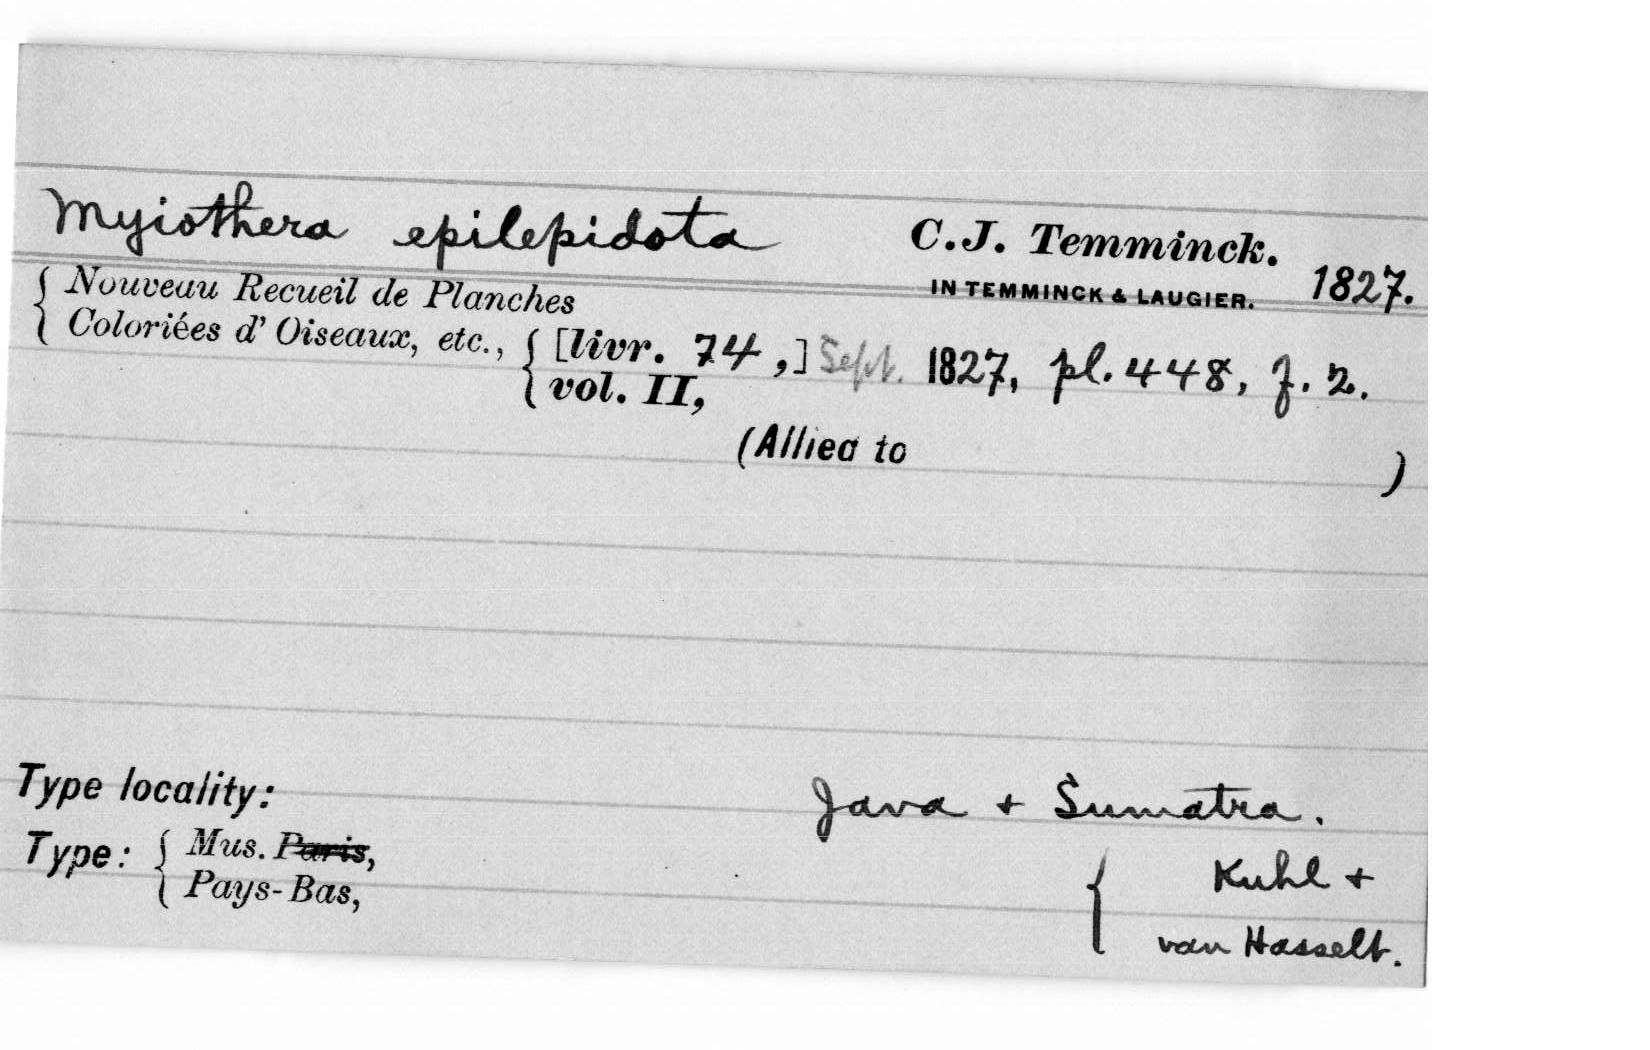 Myiothera epilepidota C.J. Temminck.
IN TEMMINCK & LAUGIER. 1827.
{ Nouveau Recueil de Planches
Coloriées d' Oiseaux, etc., { [livr. 74,] Sept. 1827, pl. 448, f. 2.
vol. II,
(Allied to )
Type locality: Java + Sumatra.
Type: { Mus. Paris, { Kuhl +
Pays-Bas, van Hasselt.